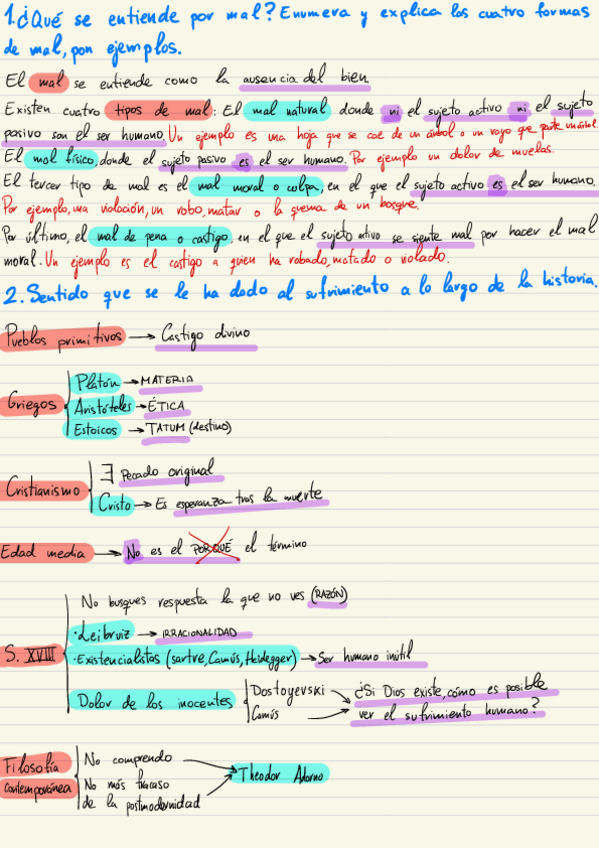 1. ¿Qué se entiende por mal? Enumera y explica las cuatro formas
de mal, pon ejemplos.
El mal se entiende como la ausencia del bien
Existen cuatro tipos de mal: El mal natural donde ni el sujeto activo ni el sujeto
pasivo son el ser humano. Un ejemplo es una hoja que se cae de un árbol o un rayo que parte un árbol.
El mal físico, donde el sujeto pasivo es el ser humano. Por ejemplo un dolor de muelas.
El tercer tipo de mal es el mal moral o culpa, en el que el sujeto activo es el ser humano.
Por ejemplo, una violación, un robo, matar o la quema de un bosque.
Por último, el mal de pena o castigo, en el que el sujeto activo se siente mal por hacer el mal
moral. Un ejemplo es el castigo a quien ha robado, matado o violado.
2. Sentido que se le ha dado al sufrimiento a lo largo de la historia.
Pueblos primitivos → Castigo divino
Griegos
Platón → MATERIA
Aristóteles → ÉTICA
Estoicos → TATUM (destino)
Cristianismo
∃ Pecado original
Cristo → Es esperanza tras la muerte
Edad media → No es el PORQUÉ el término
S. XVIII
No busques respuesta la que no ves (RAZÓN)
· Leibruiz → IRRACIONALIDAD
· Existencialistas (sartre, Camús, Heidegger) → Ser humano inútil
Dolor de los inocentes
Dostoyevski
Camús
¿Si Dios existe, cómo es posible
ver el sufrimiento humano?
Filosofía
Contemporánea
No comprendo
No más fracaso
de la postmodernidad
Theodor Adorno